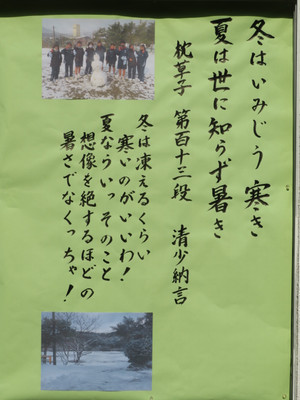 冬はいみじう寒き
夏は世に知らず暑き
枕草子 第百十三段 清少納言
冬は凍えるくらい
寒いのがいいわ!
夏ならいっそのこと
想像を絶するほどの
暑さでなくっちゃ!